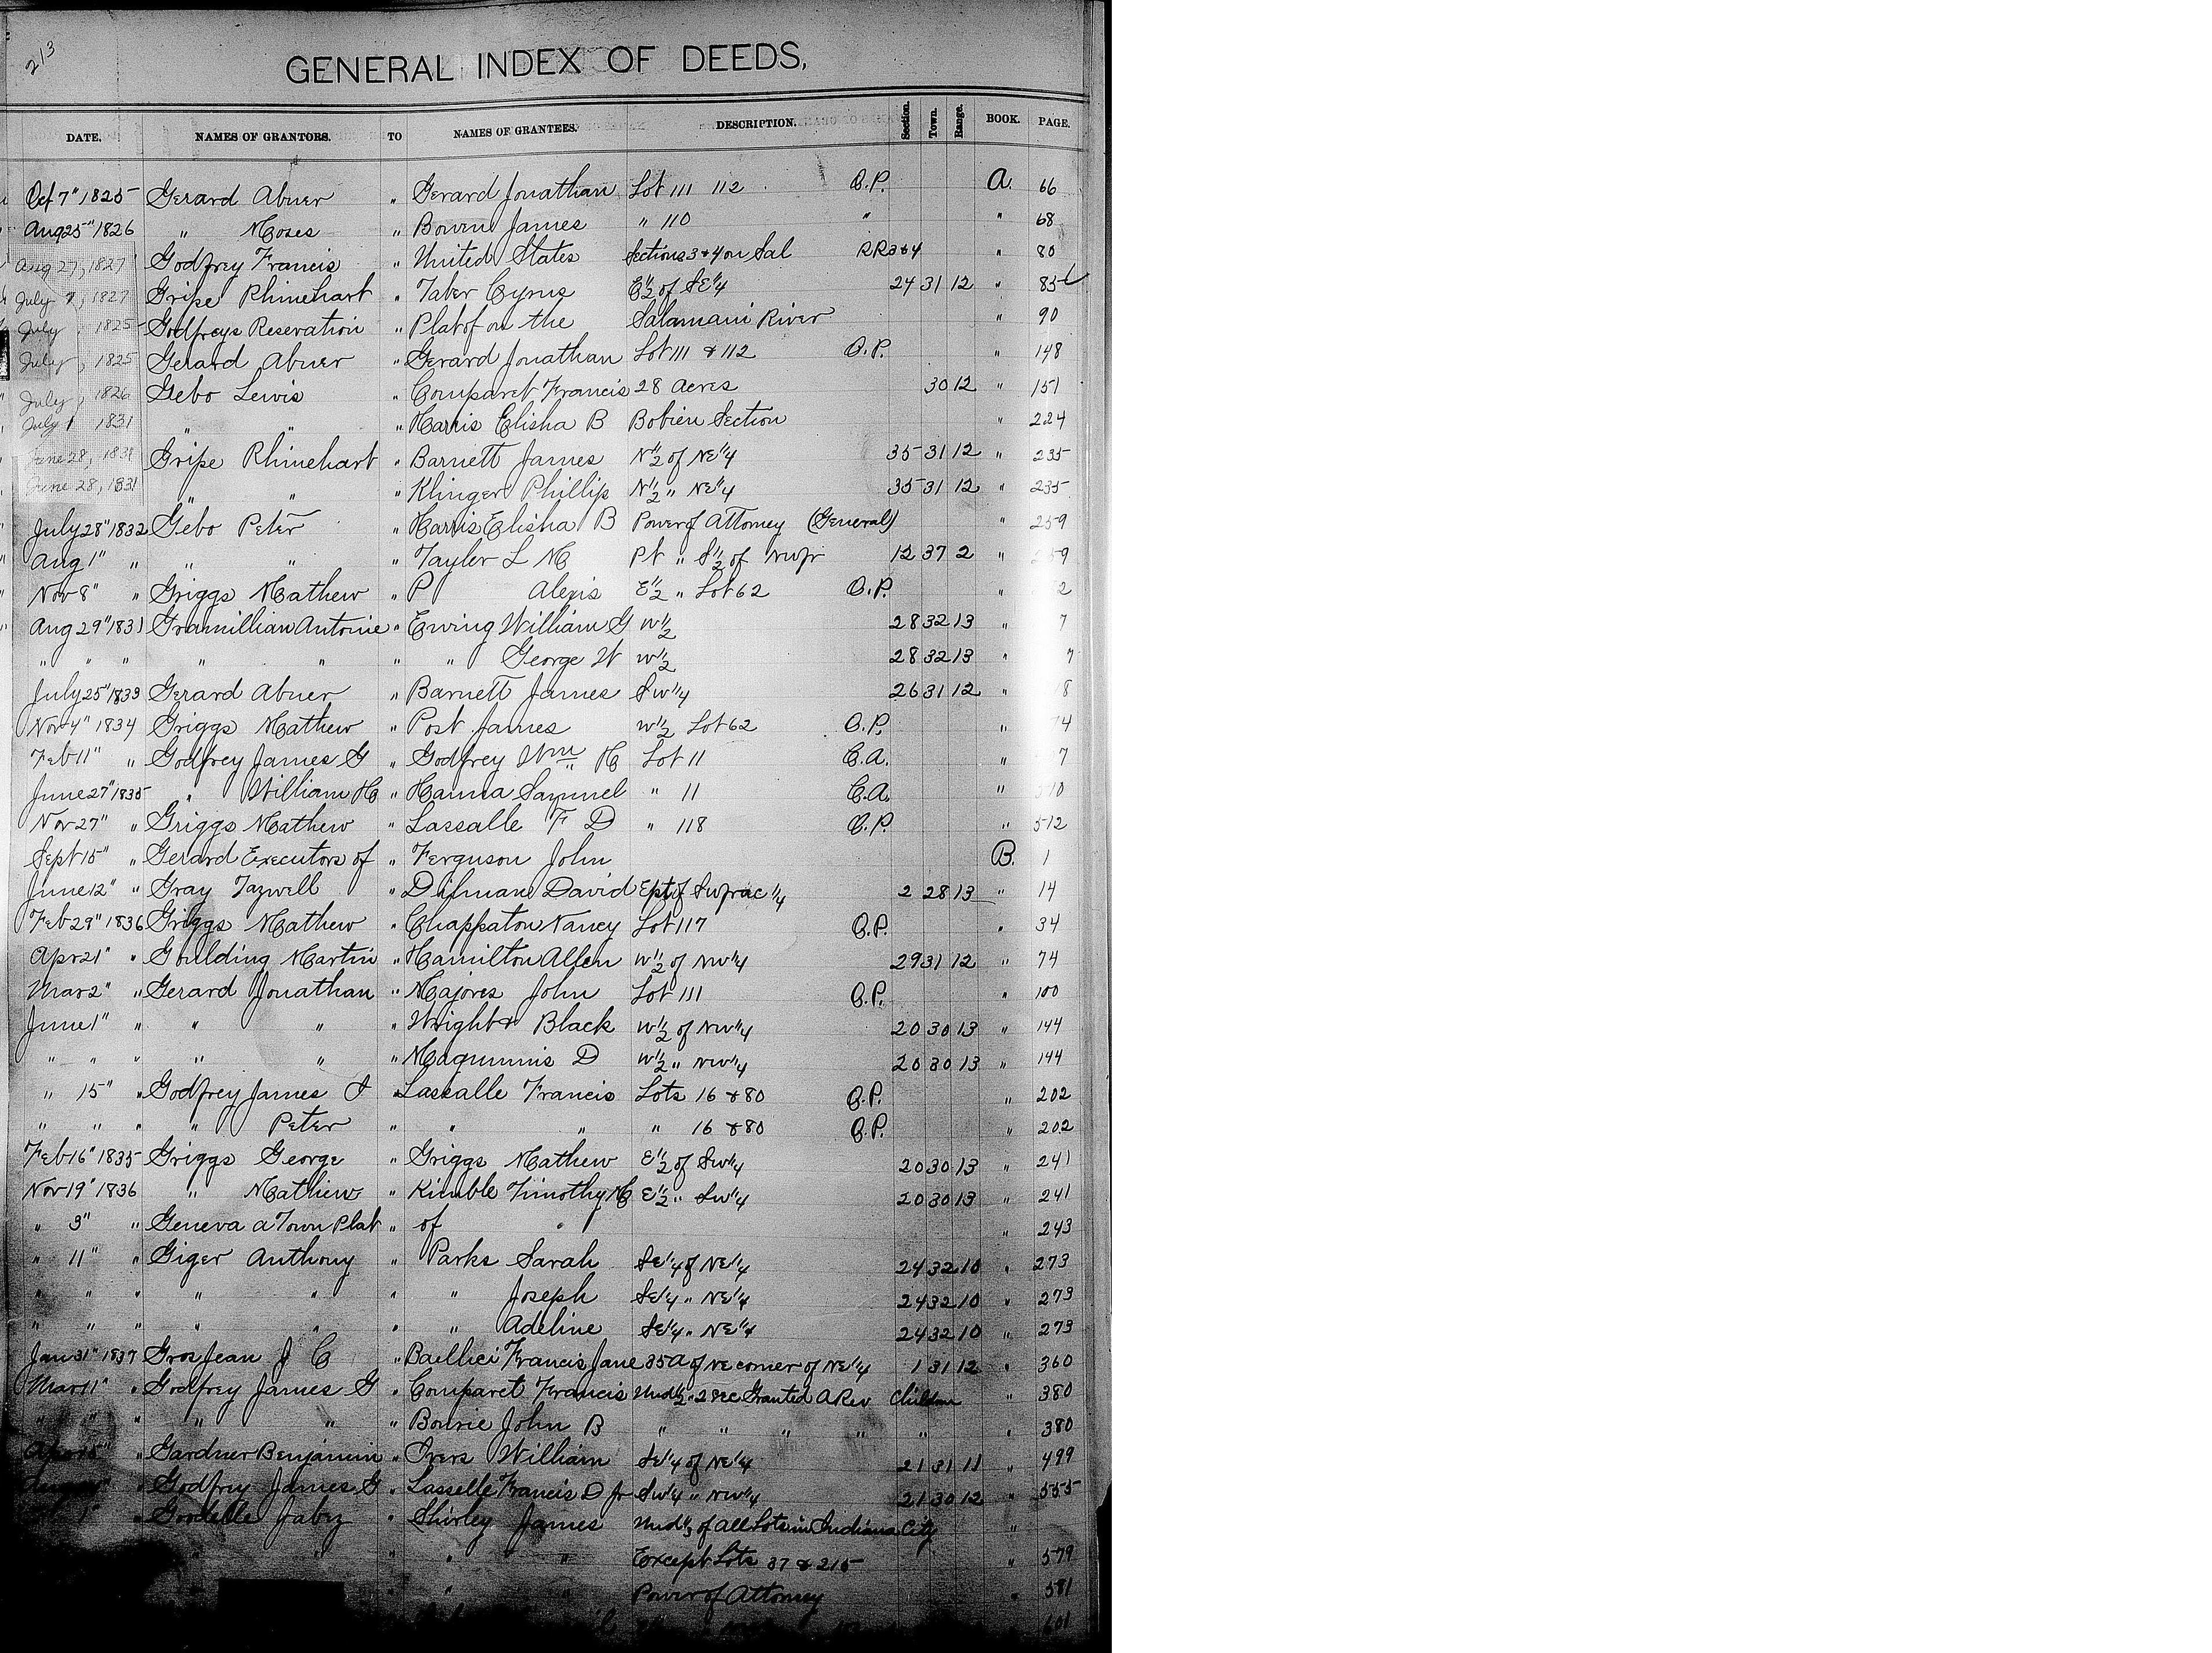 213
GENERAL INDEX OF DEEDS,
DATE. NAMES OF GRANTORS. TO NAMES OF GRANTEES. DESCRIPTION. Section. Town. Range. BOOK. PAGE.
Oct 7" 1825 Gerard Abner " Gerard Jonathan Lot 111 112 O.P. A. 66
Aug 25" 1826 " Moses " Bowen James " 110 " " 68
Aug 27, 1827 Godfrey Francis " United States Sections 3 & 4 on Sal RR 3 & 4 " 80
July 7, 1827 Gripe Rhinehart " Taber Cyrus E 1/2 of SE 1/4 24 31 12 " 85
July 1825 Godfreys Reservation " Plat of on the Salamani River " 90
July , 1825 Gerard Abner " Gerard Jonathan Lot 111 & 112 O.P. " 148
July , 1826 Gebo Lewis " Comparet Francis 28 Acres 30 12 " 151
July 1 1831 " " " Harris Elisha B Bobien Section " 224
June 28, 1831 Gripe Rhinehart " Barnett James N 1/2 of NE 1/4 35 31 12 " 235
June 28, 1831 " " " Klinger Phillip N 1/2 " NE 1/4 35 31 12 " 235
July 28" 1832 Gebo Peter " Harris Elisha B Power of Attorney (General) " 259
Aug 1" " " " " Tayler L M Pt " S 1/2 of NW fr 12 37 2 "
Nov 8" " Griggs Mathew " P Alexis E 1/2 " Lot 62 O.P. " 2
Aug 29" 1831 Gramillian Antonie " Ewing William G W 1/2 28 32 13 " 7
" " " " " " " George W W 1/2 28 32 13 " 7
July 25" 1833 Gerard Abner " Barnett James SW 1/4 26 31 12 " 8
Nov 4" 1834 Griggs Mathew " Post James W 1/2 Lot 62 O.P. " 4
Feb 11" " Godfrey James G " Godfrey Wm H Lot 11 C.A. " 7
June 27" 1835 " William H " Hanna Samuel " 11 C.A. " 10
Nov 27" " Griggs Mathew " Lassalle F D " 118 O.P. " 512
Sept 15" " Gerard Executors of " Ferguson John B. 1
June 12" " Gray Tazwell " Dilman David E pt of SW frac 1/4 2 28 13 " 14
Feb 29" 1836 Griggs Mathew " Chappaton Nancy Lot 117 O.P. " 34
Apr 21" " Goulding Martin " Hamilton Allen W 1/2 of NW 1/4 29 31 12 " 74
Mar 2" " Gerard Jonathan " Majores John Lot 111 O.P. " 100
June 1" " " " " Wright & Black W 1/2 of NW 1/4 20 30 13 " 144
" " " " " " Magunnis D W 1/2 " NW 1/4 20 30 13 " 144
" 15" " Godfrey James J " Lassalle Francis Lots 16 & 80 O.P. " 202
" " " " Peter " " " " 16 & 80 O.P. " 202
Feb 16" 1835 Griggs George " Griggs Mathew E 1/2 of SW 1/4 20 30 13 " 241
Nov 19" 1836 " Mathew " Kimble Timothy M E 1/2 " SW 1/4 20 30 13 " 241
" 3" " Geneva a Town Plat " of " " 243
" 11" " Giger Anthony " Parks Sarah SE 1/4 of NE 1/4 24 32 10 " 273
" " " " " " " Joseph SE 1/4 " NE 1/4 24 32 10 " 273
" " " " " " " Adeline SE 1/4 " NE 1/4 24 32 10 " 273
Jan 31" 1837 Grosjean J C " Baelhei Francis Jane 35 A of NE corner of NE 1/4 1 31 12 " 360
Mar 11" " Godfrey James G " Comparet Francis Und 1/2 " 2 Sec Granted A Rev Children " 380
" " " " " " Bourie John B " " " " " " 380
Apr 15" " Gardner Benjamin " Ivers William SE 1/4 of NE 1/4 21 31 11 " 499
" Godfrey James G " Lasselle Francis D Jr SW 1/4 " NW 1/4 21 30 12 " 555
1" " Jabez " Shirley James Und 1/3 of all Lots in Indiana City "
" " " " " Except Lots 37 & 215 " 579
" " " Power of Attorney " 581
601